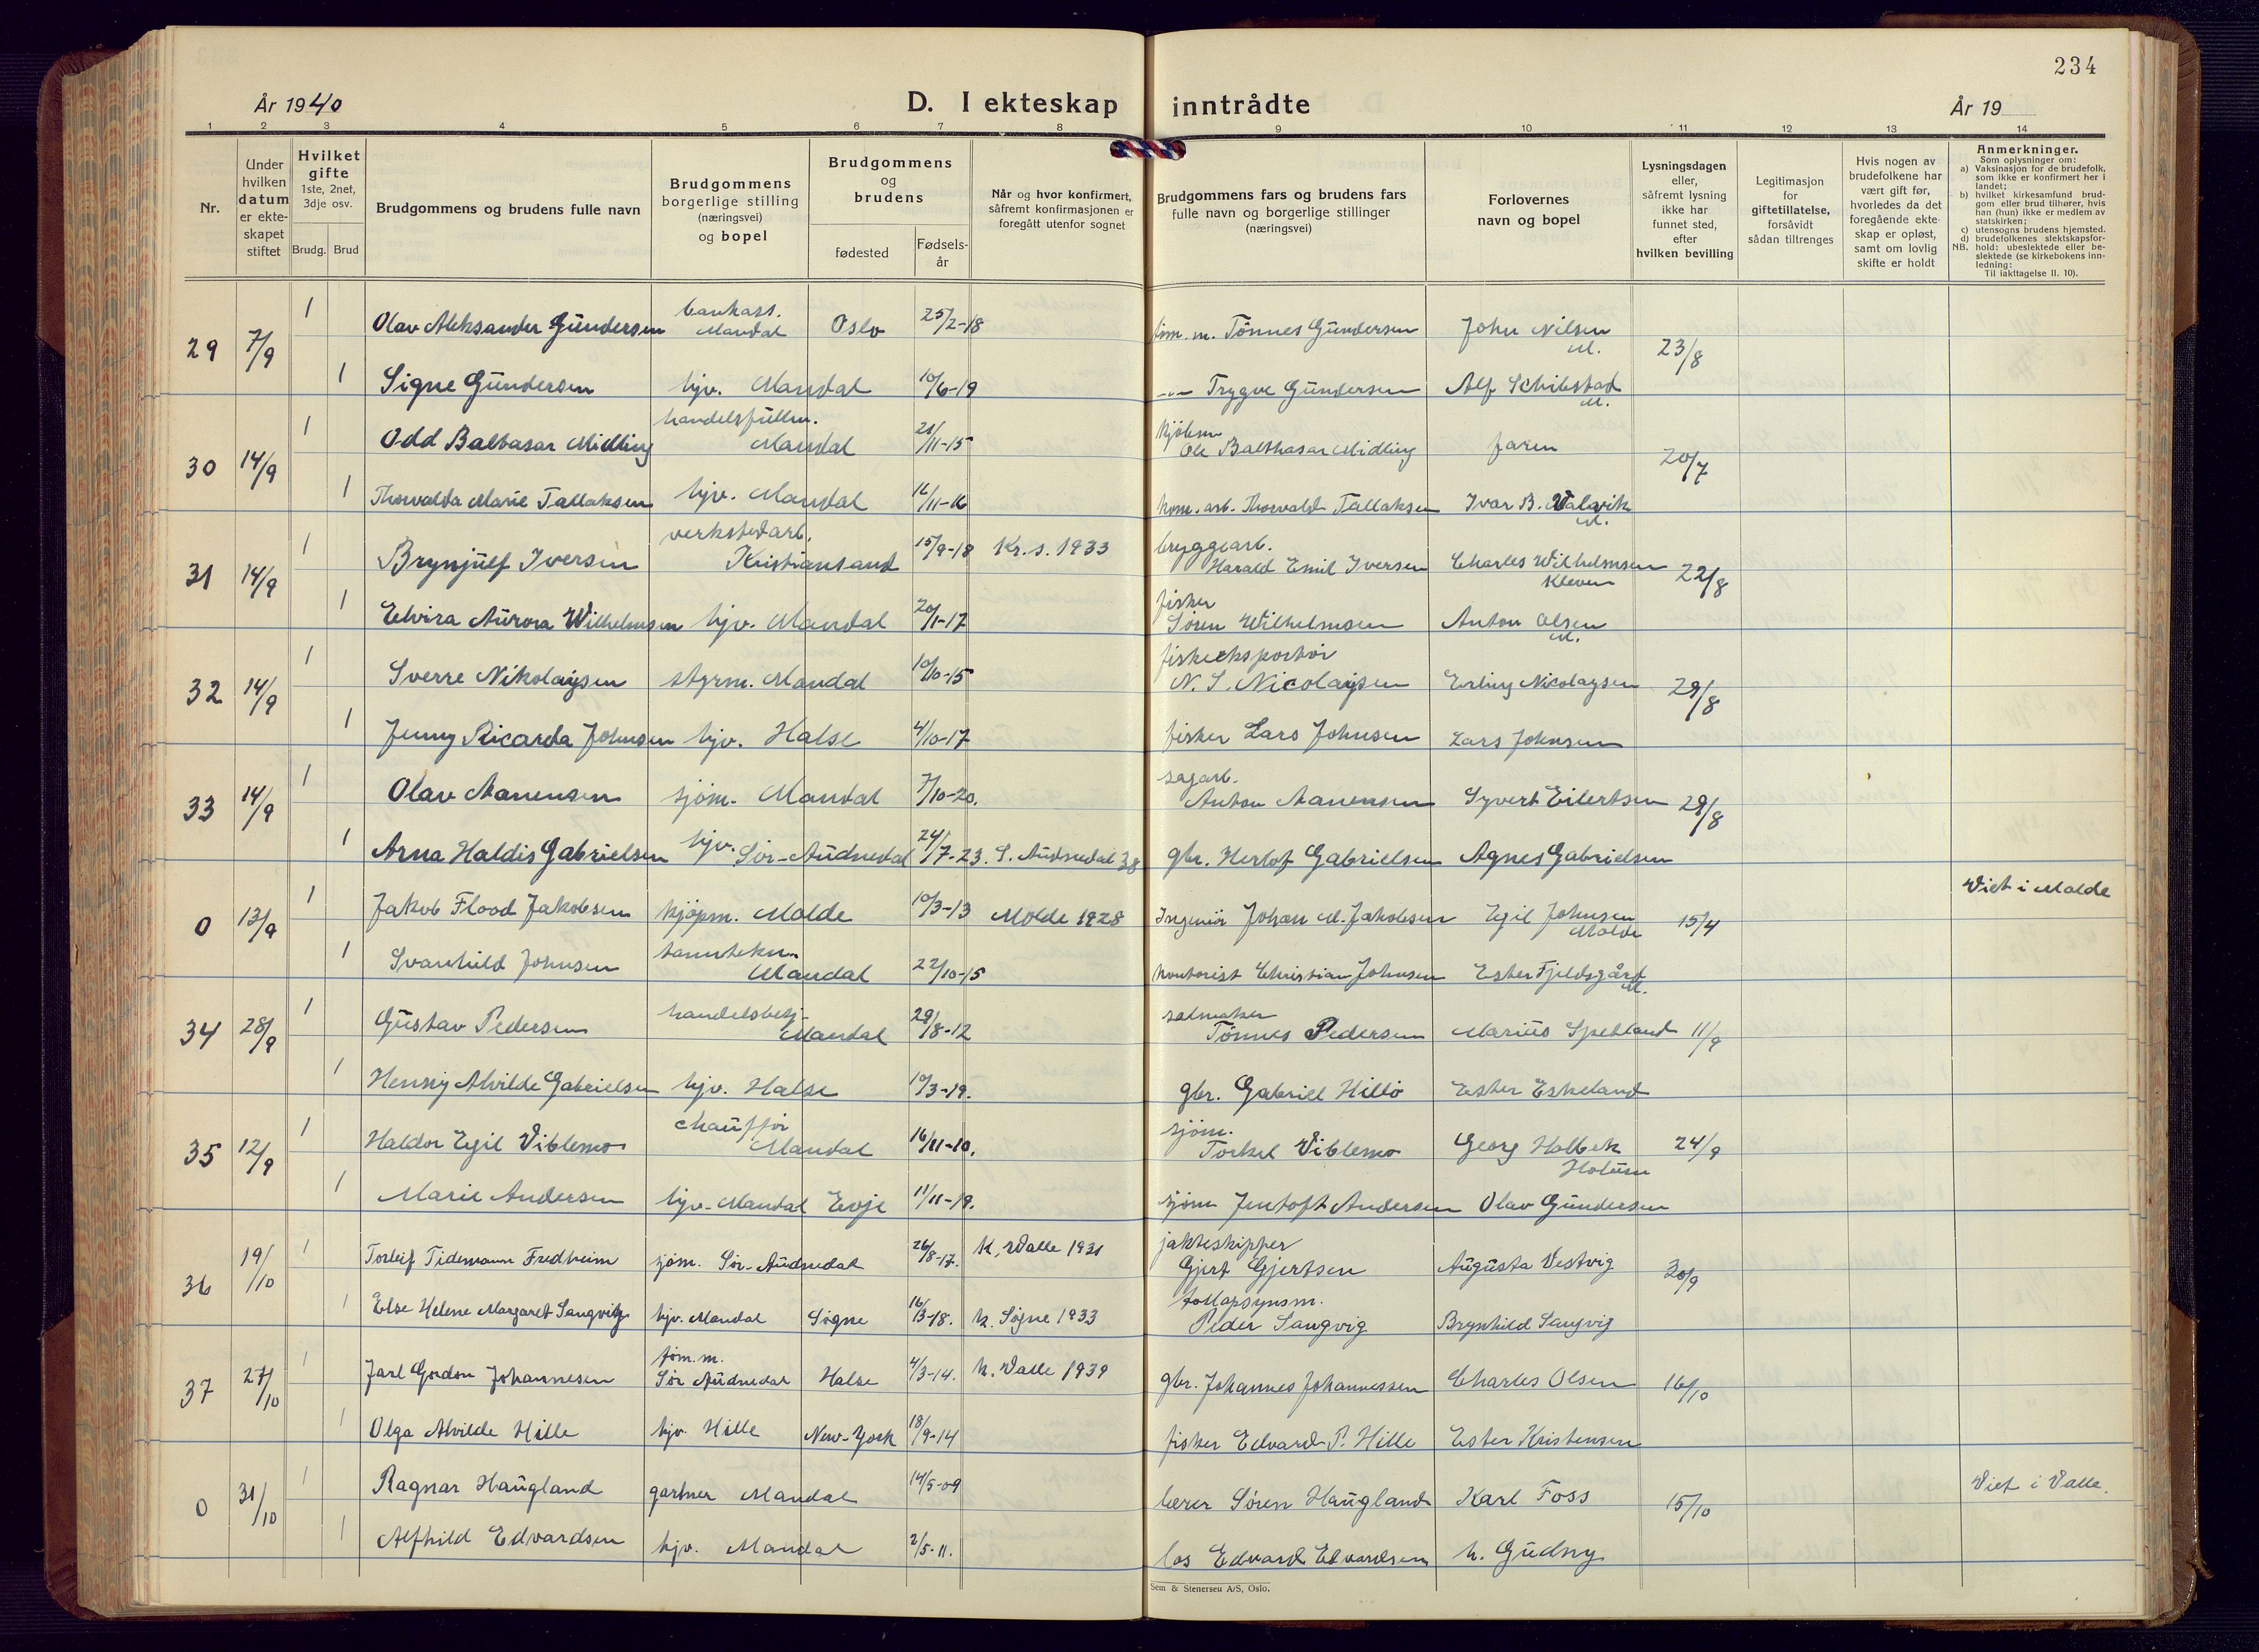 234
År 1940
D. I ekteskap inntrådte
År 19
1 2 3 4 5 6 7 8 9 10 11 12 13 14
Nr.
Under hvilken datum er ekteskapet stiftet
Hvilket gifte 1ste, 2net, 3dje osv.
Brudg. Brud
Brudgommens og brudens fulle navn
Brudgommens borgerlige stilling (næringsvei) og bopel
Brudgommens og brudens
fødested
Fødselsår
Når og hvor konfirmert, såfremt konfirmasjonen er foregått utenfor sognet
Brudgommens fars og brudens fars fulle navn og borgerlige stillinger (næringsvei)
Forlovernes navn og bopel
Lysningsdagen eller, såfremt lysning ikke har funnet sted, efter hvilken bevilling
Legitimasjon for giftetillatelse, forsåvidt sådan tiltrenges
Hvis nogen av brudefolkene har vært gift før, hvorledes da det foregående ekteskap er opløst, samt om lovlig skifte er holdt
Anmerkninger.
Som oplysninger om:
a) Vaksinasjon for de brudefolk, som ikke er konfirmert her i landet;
b) hvilket kirkesamfund brudgom eller brud tilhører, hvis han (hun) ikke er medlem av statskirken;
c) utensogns brudens hjemsted.
d) brudefolkenes slektskapsforhold: ubeslektede eller beslektede (se kirkebokens innledning:
NB. Til iakttagelse II. 10).
29 7/9 1 Olav Aleksander Gundersen bankass. Mandal Oslo 25/2-18 tøm. m. Tønnes Gundersen John Nilsen M. 23/8
1 Signe Gundersen hjv. Mandal 10/6-19 -"- Trygve Gundersen Alf Schibstad M.
30 14/9 1 Odd Baltasar Midling handelsfullm. Mandal 21/11-15 kjøbm Ole Balthasar Midling faren 20/7
1 Thorvalda Marie Tallaksen hjv. Mandal 16/11-16 kom. arb. Thorvald Tallaksen Ivar B. Walavik M.
31 14/9 1 Brynjulf Iversen verkstedarb. Kristiansand 15/9-18 Kr.s. 1933 bryggearb. Harald Emil Iversen Charles Wilhelmsen Kleven 22/8
1 Elvira Aurora Wilhelmsen hjv. Mandal 20/1-17 fisker Søren Wilhelmsen Anton Olsen M.
32 14/9 1 Sverre Nikolaysen styrm. Mandal 10/10-15 fiskeeksportør N. S. Nicolaysen Erling Nicolaysen 29/8
1 Jenny Ricarda Johnsen hjv. Halse 4/10-17 fisker Lars Johnsen Lars Johnsen
33 14/9 1 Olav Aanensen sjøm. Mandal 7/10-20. sagarb. Anton Aanensen Syvert Eilertsen 29/8
1 Arna Haldis Gabrielsen hjv. Sør-Audnedal 24/7-23. S. Audnedal 38 gbr. Herlof Gabrielsen Agnes Gabrielsen
0 13/9 1 Jakob Flood Jakobsen kjøpm. Molde 10/3-13 Molde 1928 Ingeniør Johan M. Jakobsen Egil Johnsen Molde 15/4 Viet i Molde
1 Svanhild Johnsen tanntekn. Mandal 22/10-15 kontorist Christian Johnsen Ester Fjeldsgård M.
34 28/9 1 Gustav Pedersen handelsbetj. Mandal 29/8-12 salmaker Tønnes Pedersen Marius Spetland 11/9
1 Henny Alvilde Gabrielsen hjv. Halse 10/3-19. gbr. Gabriel Hillo Ester Eskeland
35 12/9 1 Haldor Egil Viblemo chauffør Mandal 16/11-10. sjøm. Torkel Viblemo Georg Holbek Holum 24/9
1 Marie Andersen hjv. Mandal Evje 11/11-19. sjøm Jentoft Andersen Olav Gundersen
36 19/10 1 Torleif Tidemann Fredheim sjøm. Sør-Audnedal 26/8-17. k. Valle 1931 jakteskipper Gjert Gjertsen Augusta Vestvig 30/9
1 Else Helene Margaret Sangvig hjv. Mandal Søgne 16/3-18. k. Søgne 1933 tollopsynsm. Peder Sangvig Brynhild Sangvig
37 27/10 1 Jarl Gordon Johannesen tøm. m. Sør Audnedal Halse 4/3-14. k. Valle 1939 gbr. Johannes Johannessen Charles Olsen 16/10
1 Olga Alvilde Hille hjv. Hille New-York 18/9-14 fisker Edvard P. Hille Ester Kristensen
0 31/10 1 Ragnar Haugland gartner Mandal 14/5-09 lærer Søren Haugland Karl Foss 15/10 Viet i Valle.
1 Alfhild Edvardsen hjv. Mandal 2/5-11. los Edvard Edvardsen h. Gudny
Sem & Stenersen A/S, Oslo.